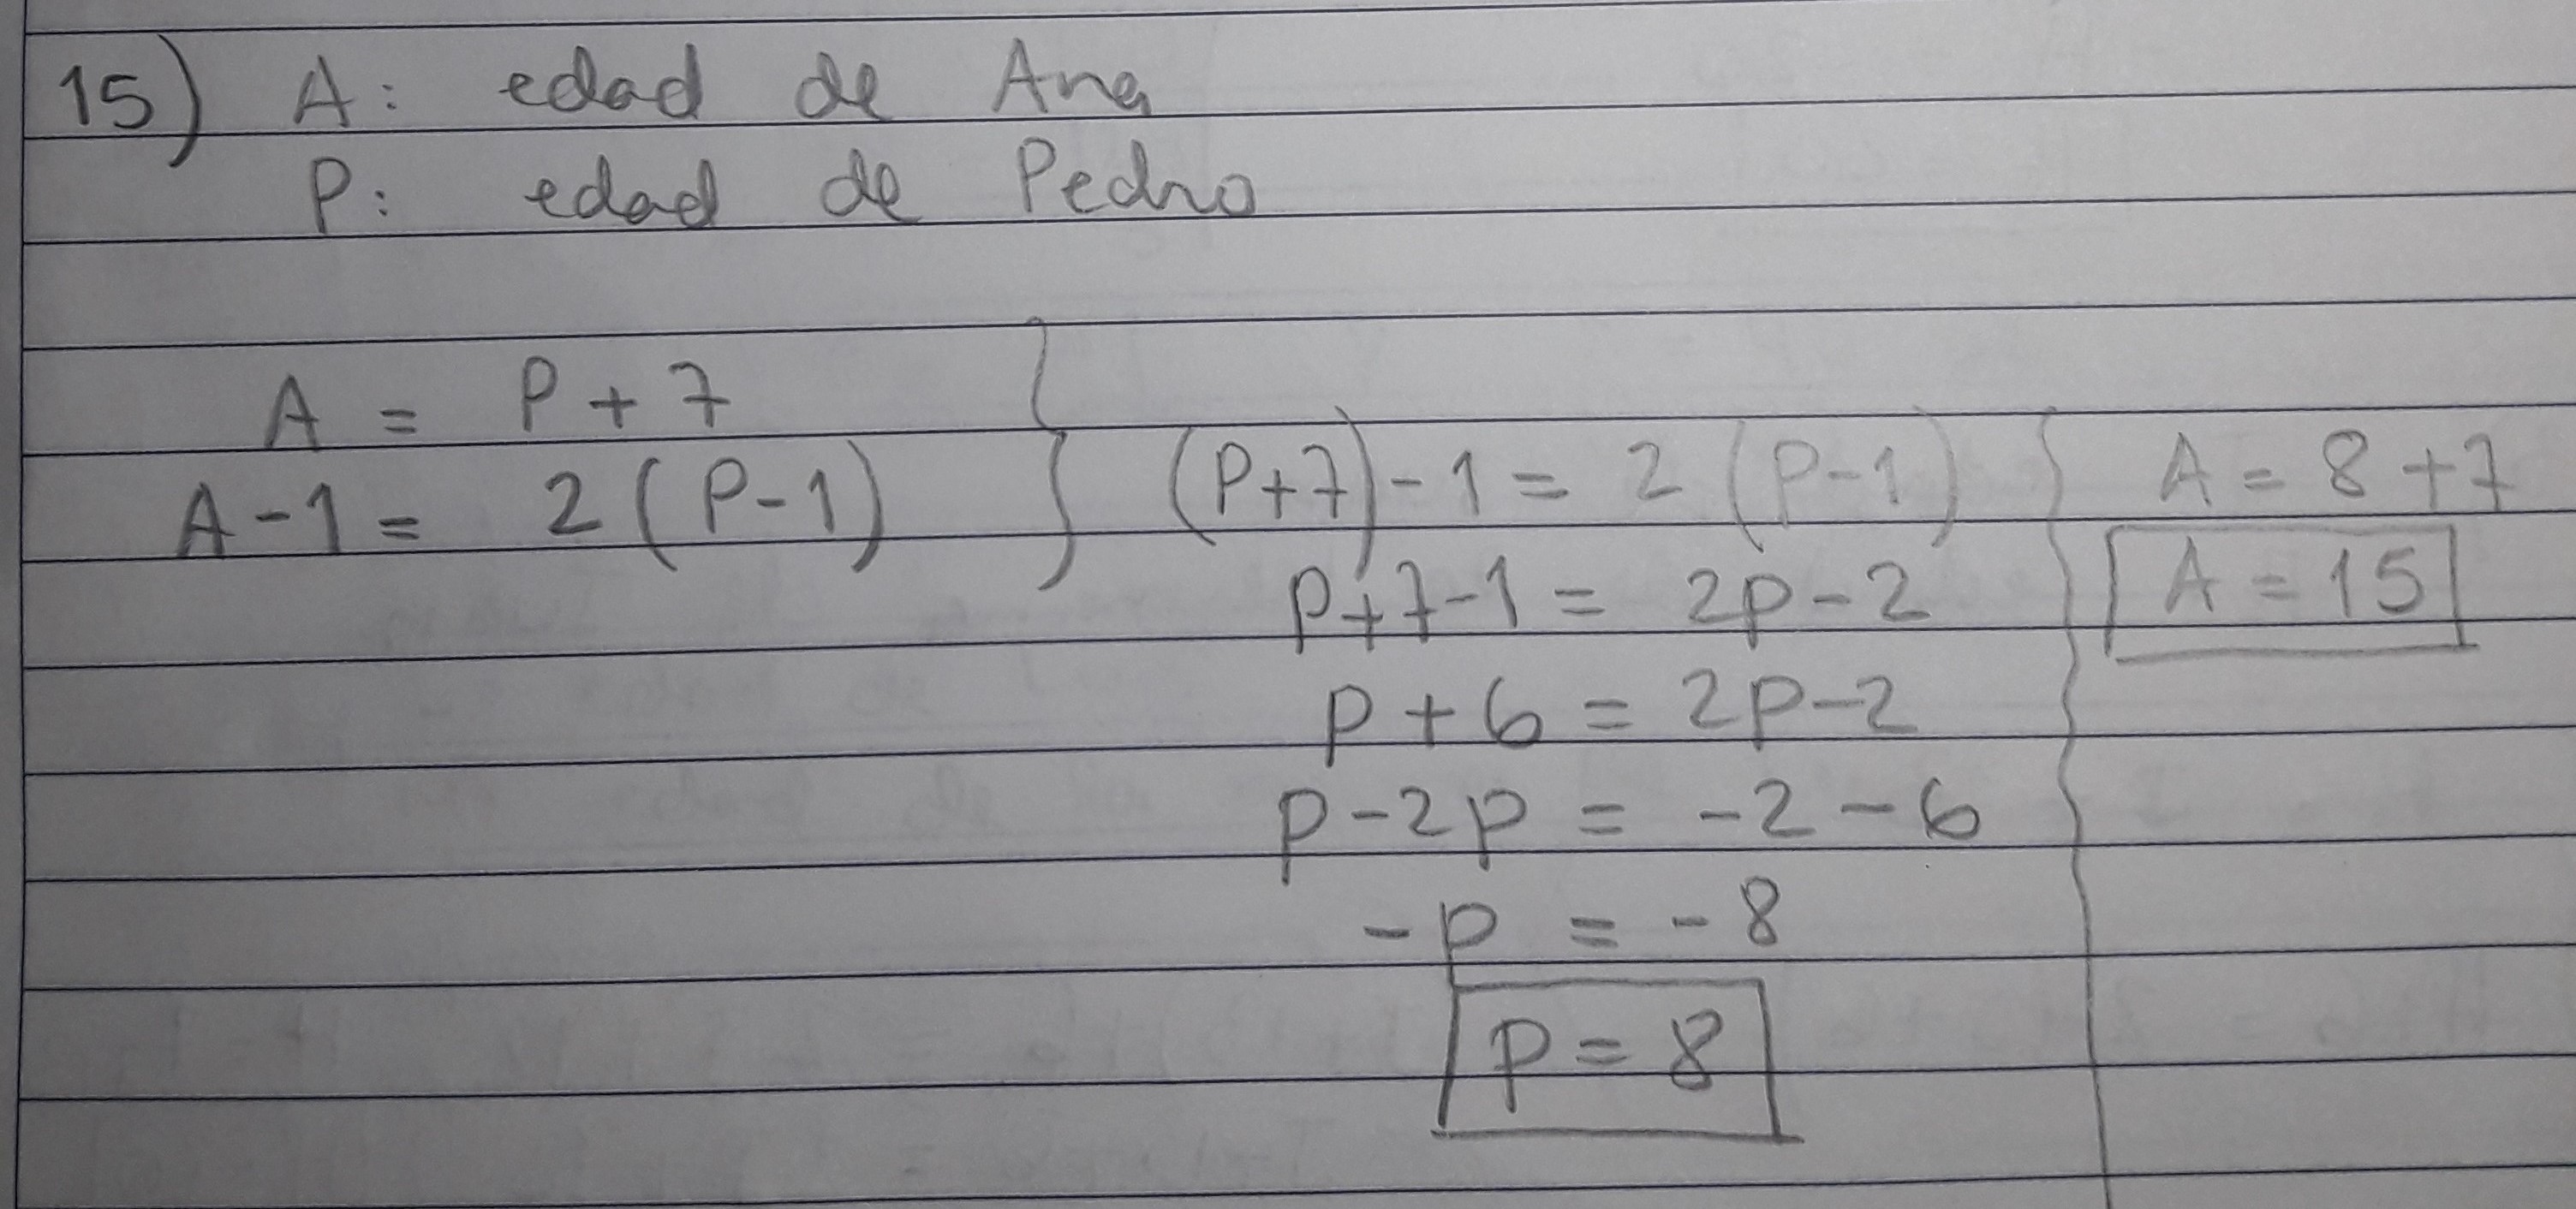 15) A: edad de Ana
P: edad de Pedro
A = P + 7
A - 1 = 2 (P - 1)
(P+7) - 1 = 2 (P - 1)
P + 7 - 1 = 2P - 2
P + 6 = 2P - 2
P - 2P = -2 - 6
-P = -8
P = 8
A = 8 + 7
A = 15